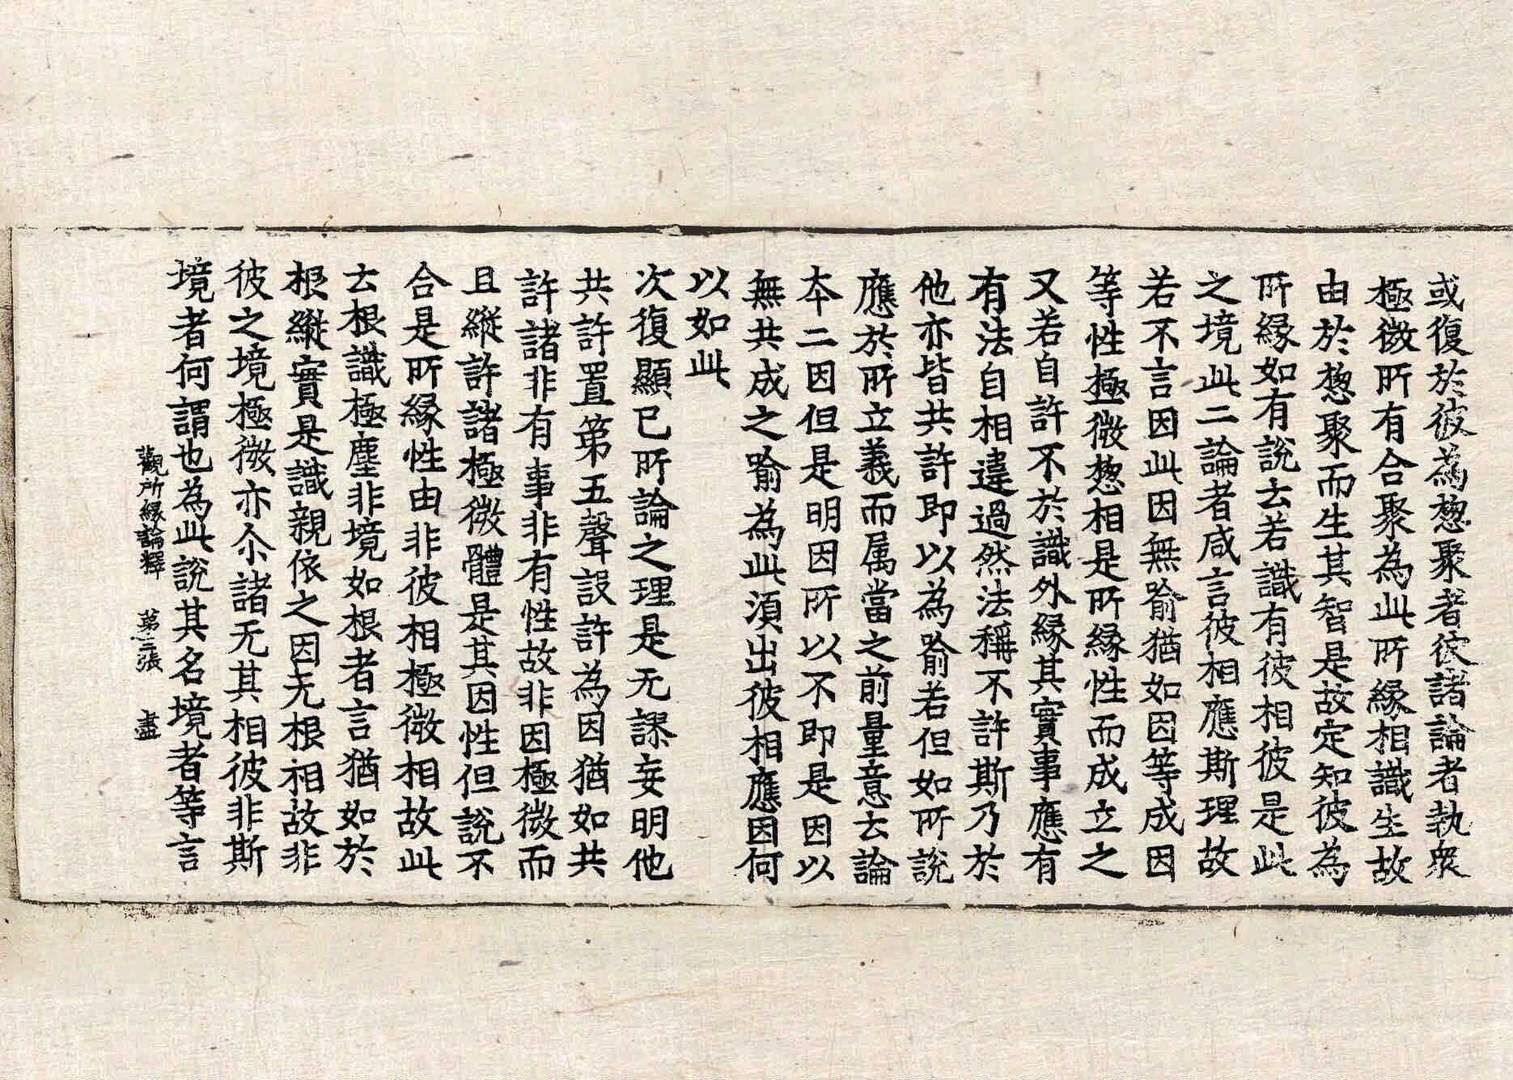 或復於彼為惣聚者彼諸論者執衆
極微所有合聚為此所緣相識生故
由於惣聚而生其智是故定知彼為
所緣如有說云若識有彼相彼是此
之境此二論者咸言彼相應斯理故
若不言因此因無喻猶如因等成因
等性極微惣相是所緣性而成立之
又若自許不於識外緣其實事應有
有法自相違過然法稱不許斯乃於
他亦皆共許即以為喻若但如所說
應於所立義而属當之前量意云論
夲二因但是明因所以不即是因以
無共成之喻為此湏出彼相應因何
以如此
次復顯已所論之理是无謬妄明他
共許置第五聲設許為因猶如共
許諸非有事非有性故非因極微而
且縱許諸極微體是其因性但說不
合是所緣性由非彼相極微相故此
云根識極塵非境如根者言猶如於
根縱實是識親依之因无根相故非
彼之境極微亦尒諸无其相彼非斯
境者何謂也為此說其名境者等言
觀所緣論釋 苐二張 盡